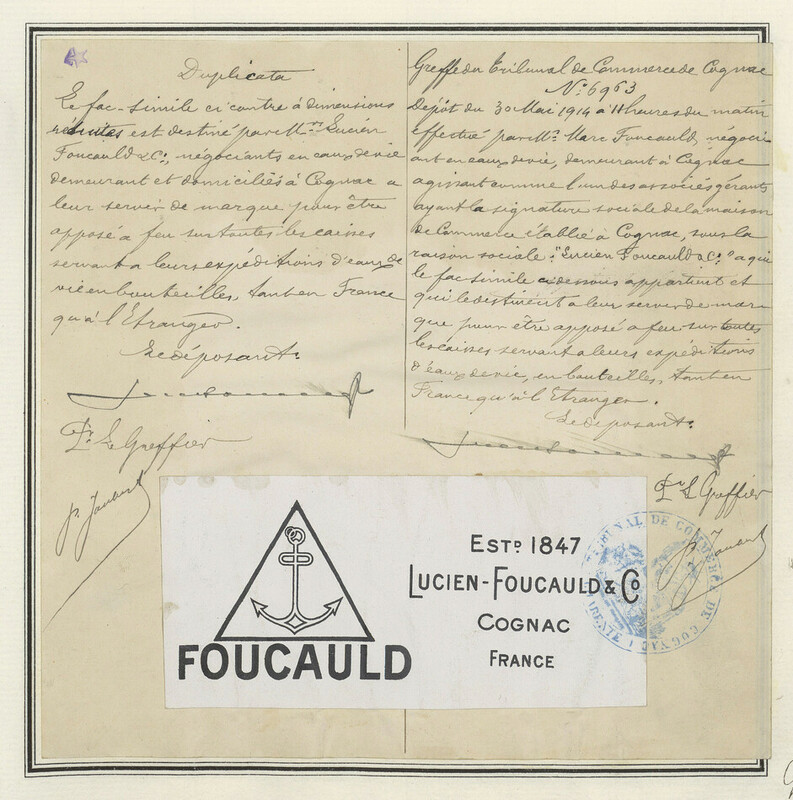 Duplicata
Le fac-simile ci contre à dimensions
réduites est destiné par M.rs Lucien
Foucauld & C°, négociants en eaux de vie
demeurant et domiciliés à Cognac a
leur servir de marque pour être
apposé a feu sur toutes les caisses
servant a leurs expéditions d'eaux de
vie en bouteilles, tant en France
qu'à l'Etranger.
Le déposant:
Pr. Le Greffier
Greffe du Tribunal de Commerce de Cognac
N° 6963
Dépôt du 30 Mai 1914 à 11 heures du matin
effectué par Mr. Marc Foucauld, négoci
ant en eaux de vie, demeurant à Cognac
agissant comme l'un des associés gérants
ayant la signature sociale de la maison
de Commerce établie à Cognac, sous la
raison sociale: "Lucien Foucauld & C°" a qui
le fac-simile ci dessous appartient et
qui le destinent a leur servir de mar
que pour être apposé a feu sur toutes
les caisses servant a leurs expéditions
d'eaux de vie, en bouteilles, tant en
France qu'à l'Etranger.
Le déposant:
Pr. Le Greffier
FOUCAULD
ESTD 1847
LUCIEN-FOUCAULD & CO
COGNAC
FRANCE
TRIBUNAL DE COMMERCE DE COGNAC